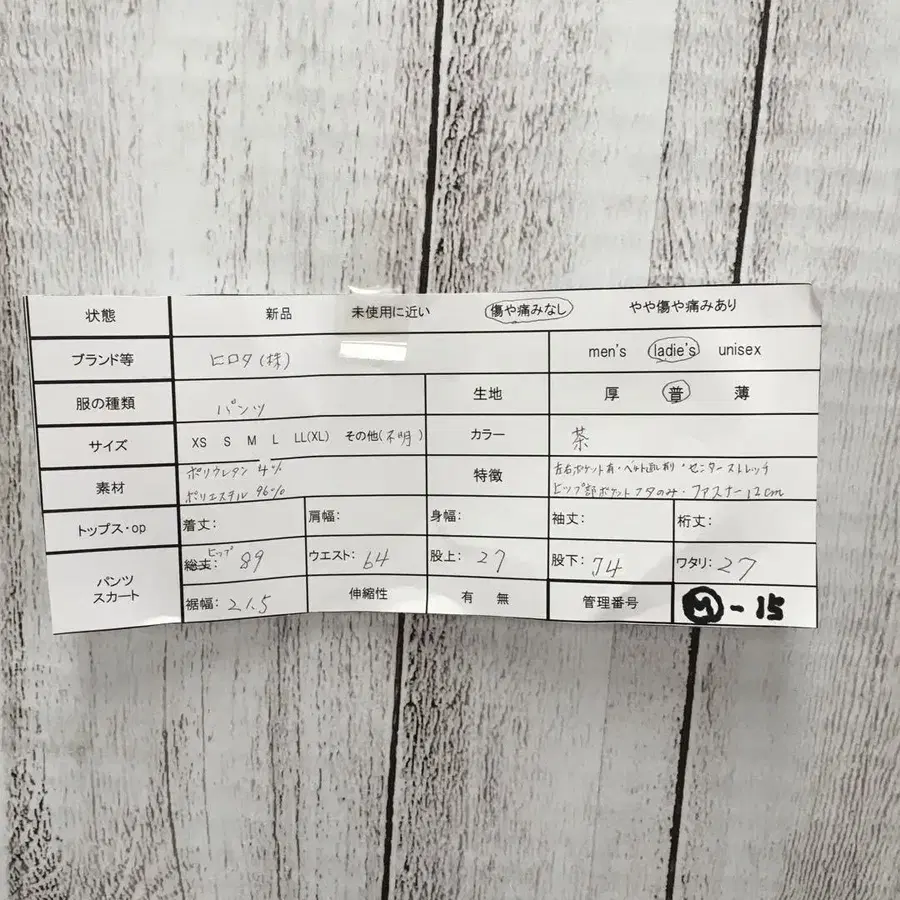 状態 新品 未使用に近い 傷や痛みなし やや傷や痛みあり
ブランド等 ヒロタ(株) men's ladie's unisex
服の種類 パンツ 生地 厚 普 薄
サイズ XS S M L LL(XL) その他(不明) カラー 茶
素材 ポリウレタン 4%
ポリエステル 96%
特徴 左右ポケット有・ベルト通し有り・センターストレッチ
ヒップ部ポケットフタのみ・ファスナー12cm
トップス・op 着丈: 肩幅: 身幅: 袖丈: 裄丈:
パンツ
スカート
ヒップ
総丈: 89 ウエスト: 64 股上: 27 股下: 74 ワタリ: 27
裾幅: 21.5 伸縮性 有 無 管理番号 M-15